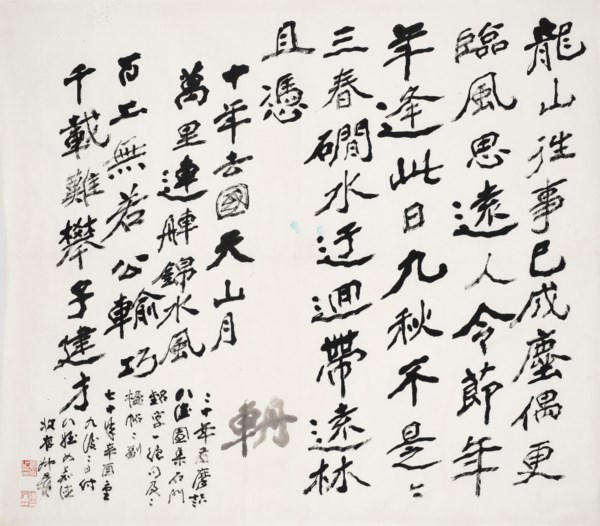 龍山往事已成塵偶更
臨風思遠人令節年
年逢此日九秋不是
三春磵水迂迴帶遠林
且憑
十年去國天山月
萬里連錦水風
百工無若公輸巧
千載難攀子建才
二十年前
八德園集石門
銘字一聯
七十年辛酉重
九後